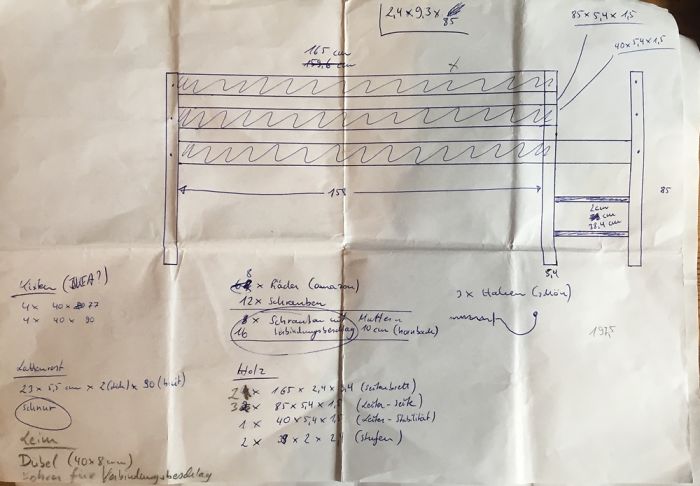 2,4 x 9,3 x 85
85 x 5,4 x 1,5
40 x 5,4 x 1,5
165 cm
159,6 cm
x
158
85
2cm
cm
38,4 cm
5,4
Kisten (IKEA?)
4x 40 x 77
4x 40 x 90
8 x Räder (amazon)
12 x Schrauben
8 x Schrauben mit Muttern
16 Verbindungsbeschlag 10 cm (hornbach)
3 x Haken (schön)
Lattenrost
23 x 5,5 cm x 2 (dick) x 90 (breit)
Schnur
Leim
Dübel (40 x 8 mm)
für Verbindungsbeschlag
Holz
2 x 165 x 2,4 x (Seitenbrett)
3 x 85 x 5,4 x 1,5 (Leiter-Seite)
1 x 40 x 5,4 x 1,5 (Leiter-Stabilität)
2 x x 2 x (Stufen)